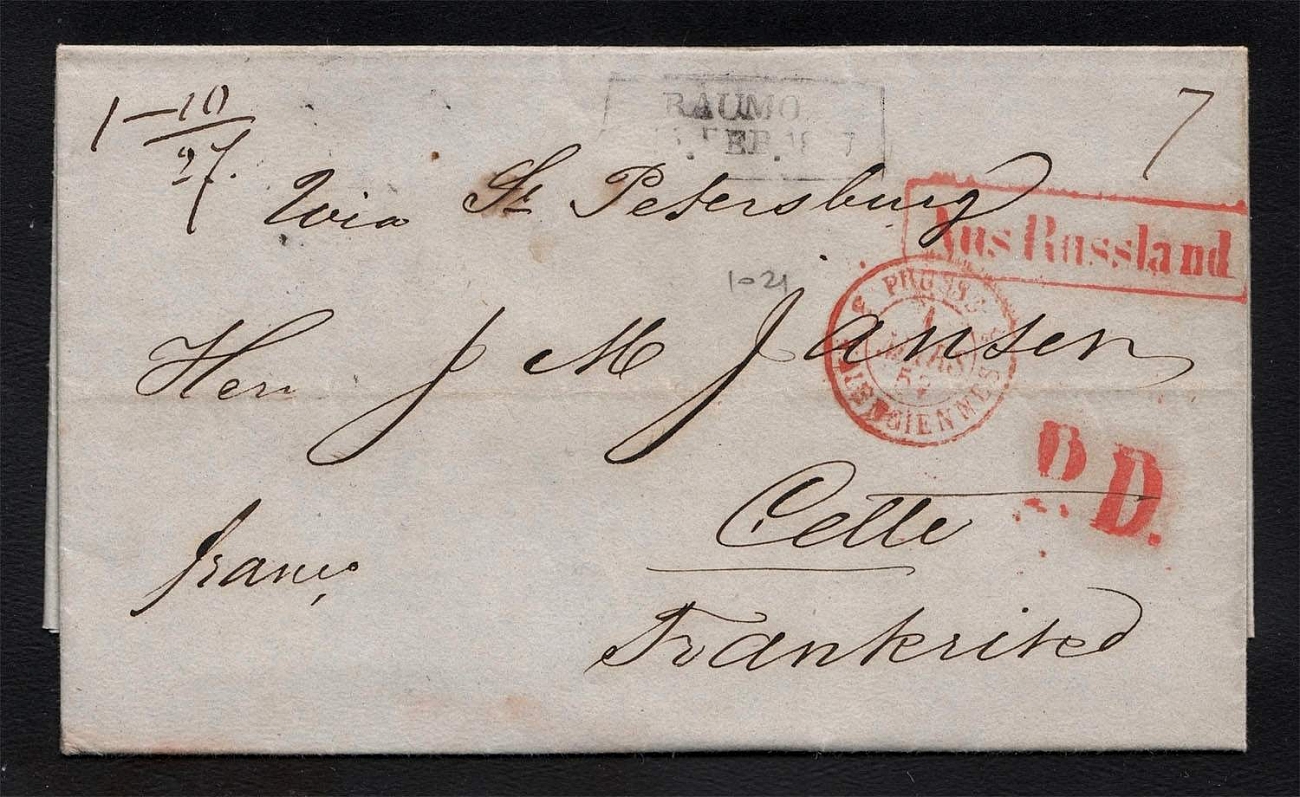 1–10/27.
RAUMO
FEB. 18 7
7
Via St Petersburg
Aus Russland
1021
PRUSSE
1
MARS
57
VALENCIENNES
Herr J M Jansen
P.D.
Cette
franco
Frankrike